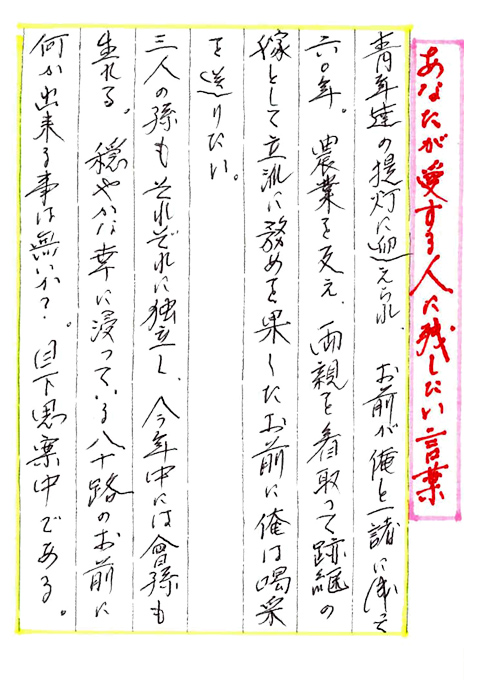 あなたが愛する人に残したい言葉
青年達の提灯に迎えられ、お前が俺と一諸に
六〇年。農業を支え、両親を看取って跡継の
嫁として立派に務めを果したお前に俺は喝采
を送りたい。
三人の孫もそれぞれに独立し、今年中には曾孫も
生れる。穏やかな幸に浸っている八十路のお前に
何か出来る事は無いか？。目下思案中である。